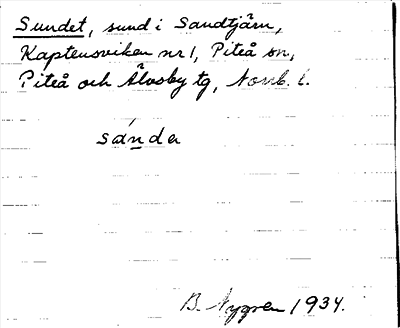 Sundet, sund i Sandtjärn,
Kaptensviken nr 1, Piteå sn,
Piteå och Älvsby tg, Norrb. l.
sándǝ
B. Nygren 1934.